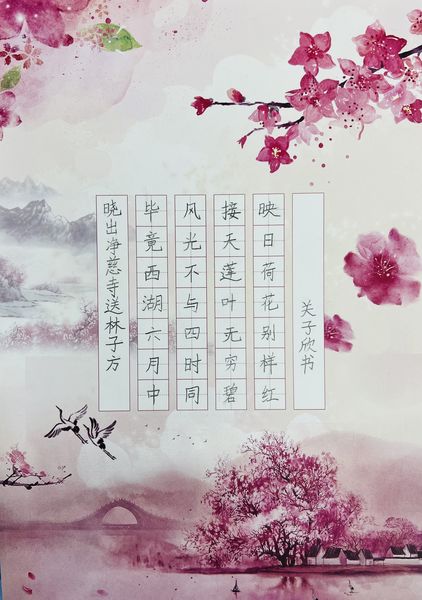 晓出净慈寺送林子方
毕竟西湖六月中
风光不与四时同
接天莲叶无穷碧
映日荷花别样红
关子欣书